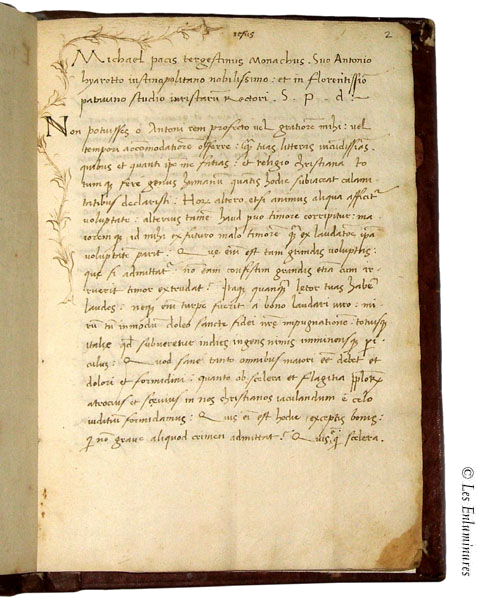 ihesus
2
Michael pacis tergestinus Monachus. Suo Antonio
hyarotto iustinopolitano nobilissimo: et in florentissīo
patavino studio iuristarum Rectori. S. P. d.
Non potuisses o Antoni rem profecto vel gratiorem mihi: vel
tempori accomodatiorem offerre: tuas litteras
quibus et quanti de me futias: et religio christiana to
tumque fere genus humanum quantis hodie subiaceat calami
tatibus declarasti. Hoc altero, etsi animus aliqua afficit
voluptate: alterius tamē haud puto timore corripitur: ma
ioremque id mihi ex futuro malo timorē ex laudatoe ipa
voluptate parit. Que eni est tam grandis voluptas:
que si admittat no eam confestim grandis etiā cum
ruerit timor extrudat? Itaque quanquā letor tuas habē
laudes: neque eni turpe fuerit a bono laudari viro: mi
rū tn inmodū doleo sancte fidei nrē impugnationē: totiusque
italie qd subveretur indies ingens nimis imminensque pi
culum: Quod sane tanto omnibus maiori eē debet et
dolori et formidini: quanto ob scelera et flagitia
atrocius et sevius in nos christianos iaculandum e celo
iuditiū formidamus: Quis ei est hodie exceptis bonis:
non grave aliquod crimen admittat? Quis scelera.
© Les Enluminures